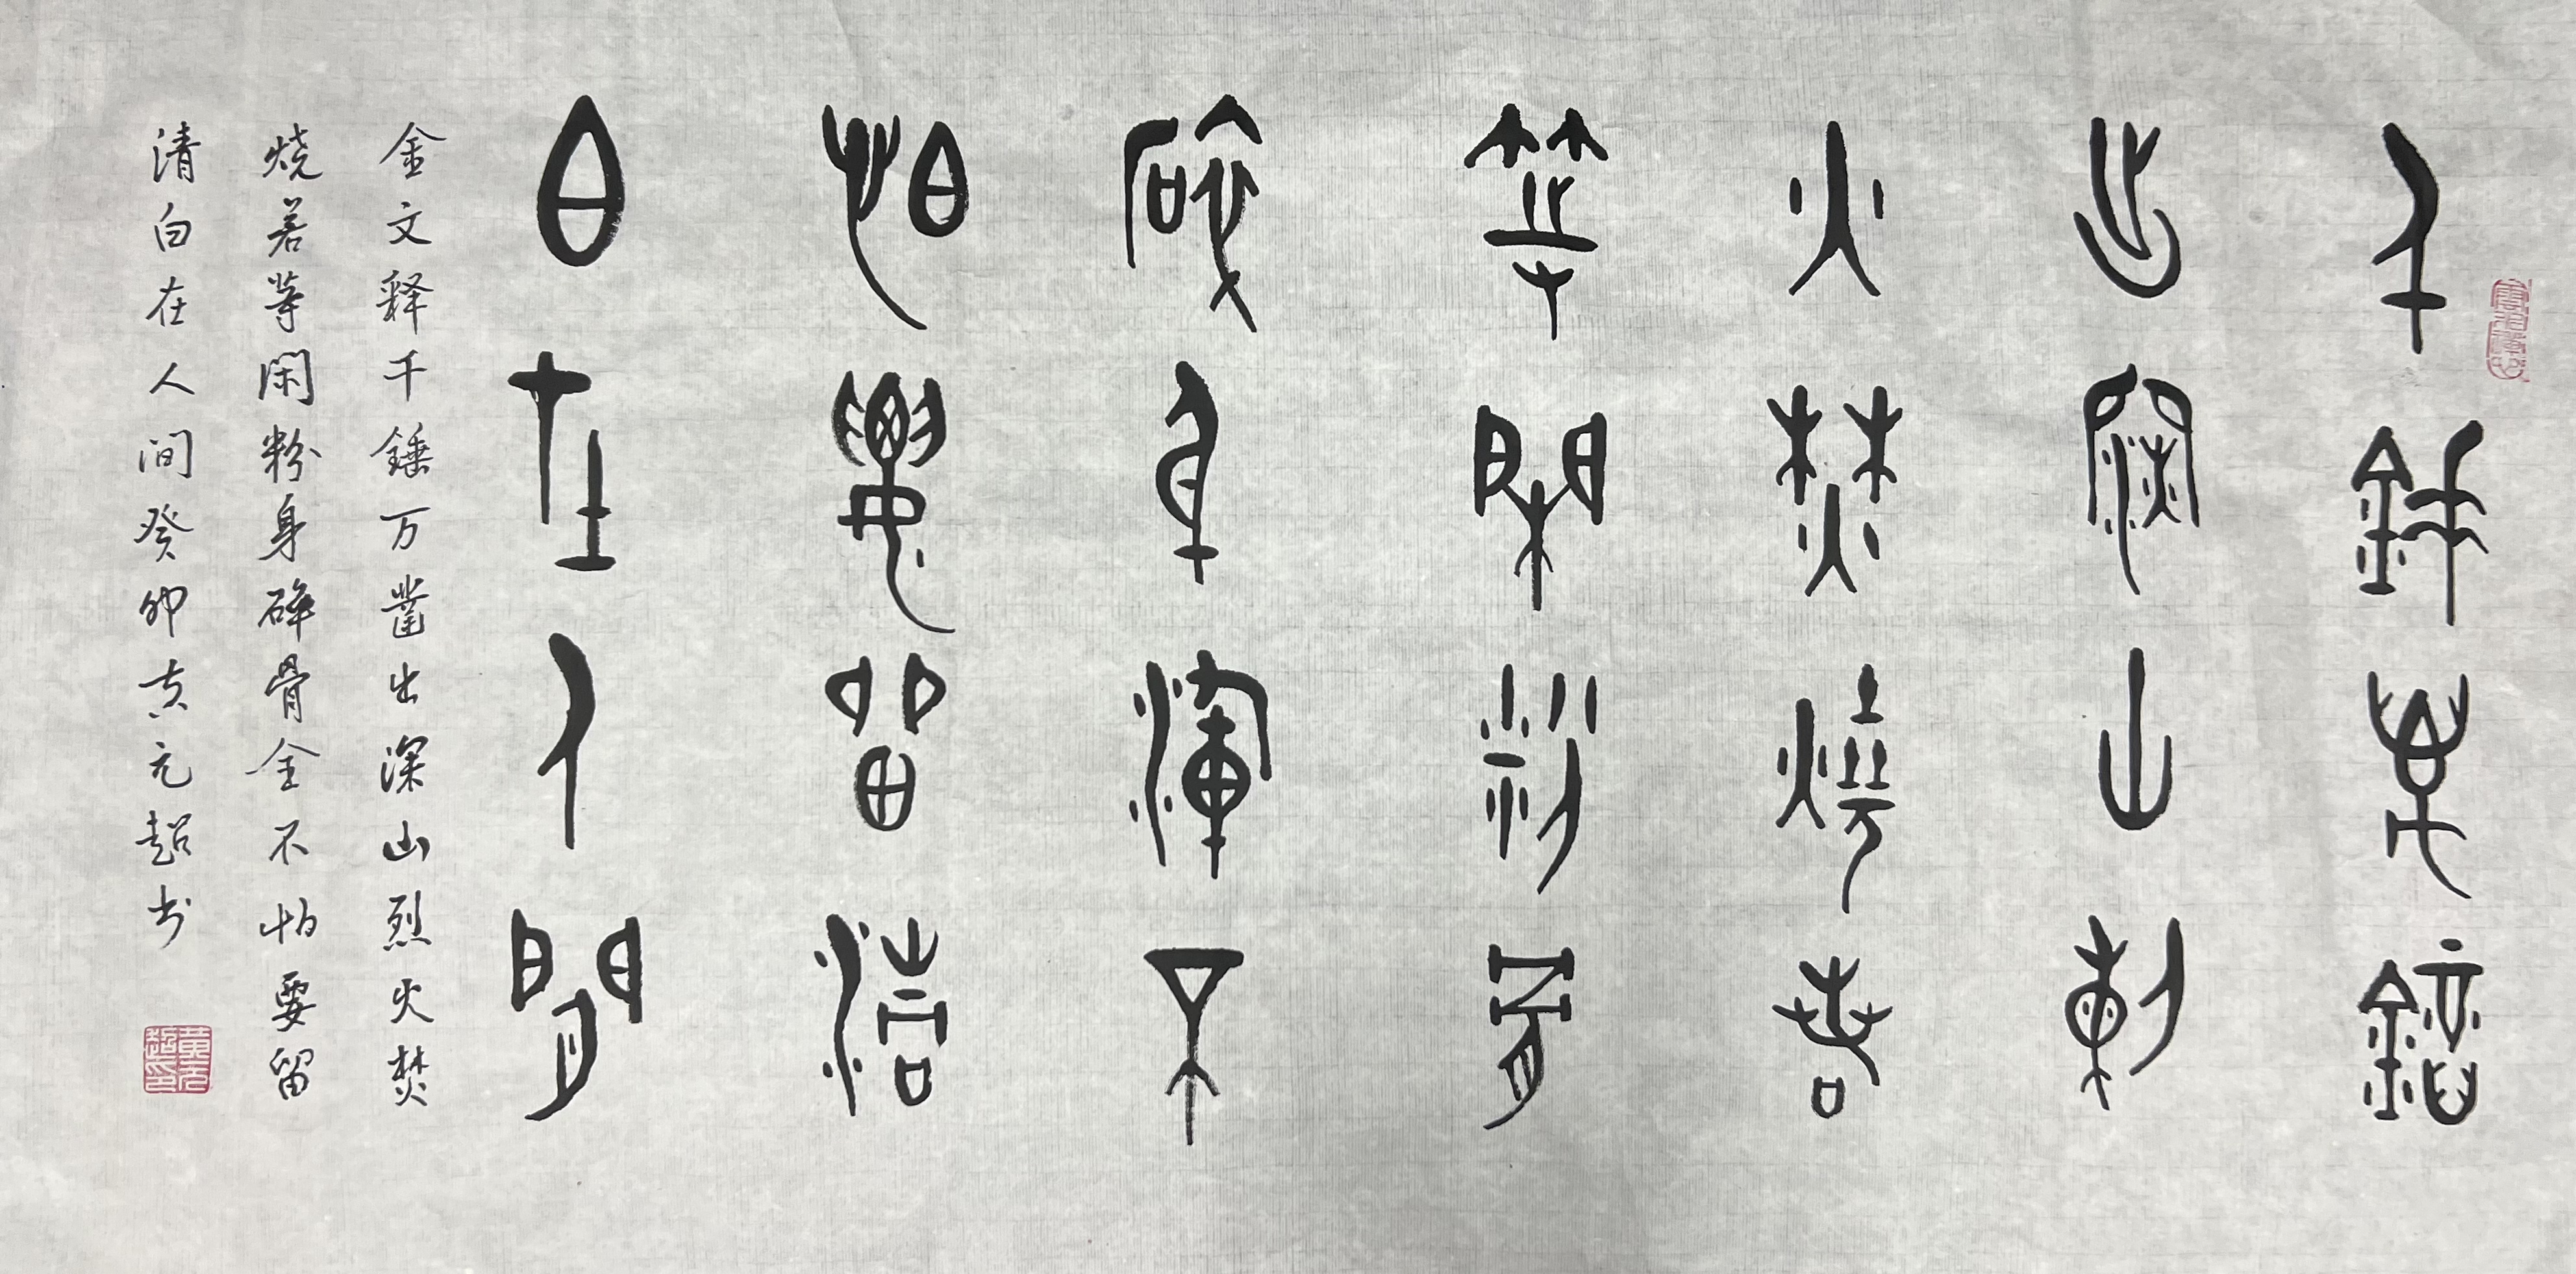 千錘萬鑿
出深山烈
火焚燒若
等閑粉身
碎骨渾不
怕要留清
白在人間
金文释千錘万凿出深山烈火焚
烧若等闲粉身碎骨全不怕要留
清白在人间癸卯黄元超书
黄元超印